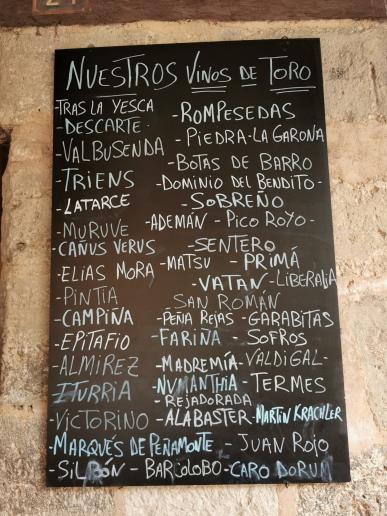 NUESTROS VINOS DE TORO
-TRAS LA YESCA
-ROMPESEDAS
-DESCARTE-
-PIEDRA-LA GARONA
-VALBUSENDA
-BOTAS DE BARRO
-TRIENS
-DOMINIO DEL BENDITO-
-LATARCE
-SOBREÑO
-MURUVE
-ADEMÁN -PICO ROYO-
-CAÑUS VERUS
-SENTERO
-ELIAS MORA
-MATSU -PRIMÁ
-PINTIA
-VATAN -LIBERALIA
SAN ROMÁN
-CAMPIÑA
-PEÑA REJAS -GARABITAS
-EPITAFIO
-FARIÑA -SOFROS
-ALMIREZ
-MADREMÍA -VALDIGAL-
-ITURRIA
-NUMANTHIA -TERMES
-REJADORADA
-VICTORINO
-ALABASTER -MARTIN KRACHLER
-MARQUÉS DE PEÑAMONTE -JUAN ROJO
-SILBÓN -BARCOLOBO -CARO DORUM